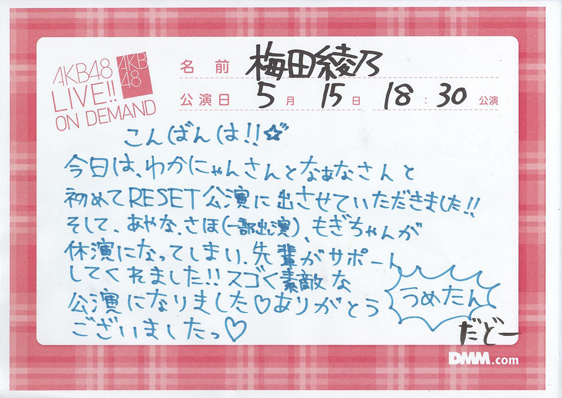 AKB48
LIVE!!
ON DEMAND
AKB
48
名前 梅田綾乃
公演日 5月 15日 18:30 公演
こんばんは!!☆
今日は、わかにゃんさんとなぁなさんと
初めてRESET公演に出させていただきました!!
そして、あやな、さほ(一部出演)、もぎちゃんが
休演になってしまい、先輩がサポート
してくれました!!スゴく素敵な
公演になりました♡ありがとう
ございましたっ♡
うめたん
だどー
DMM.com